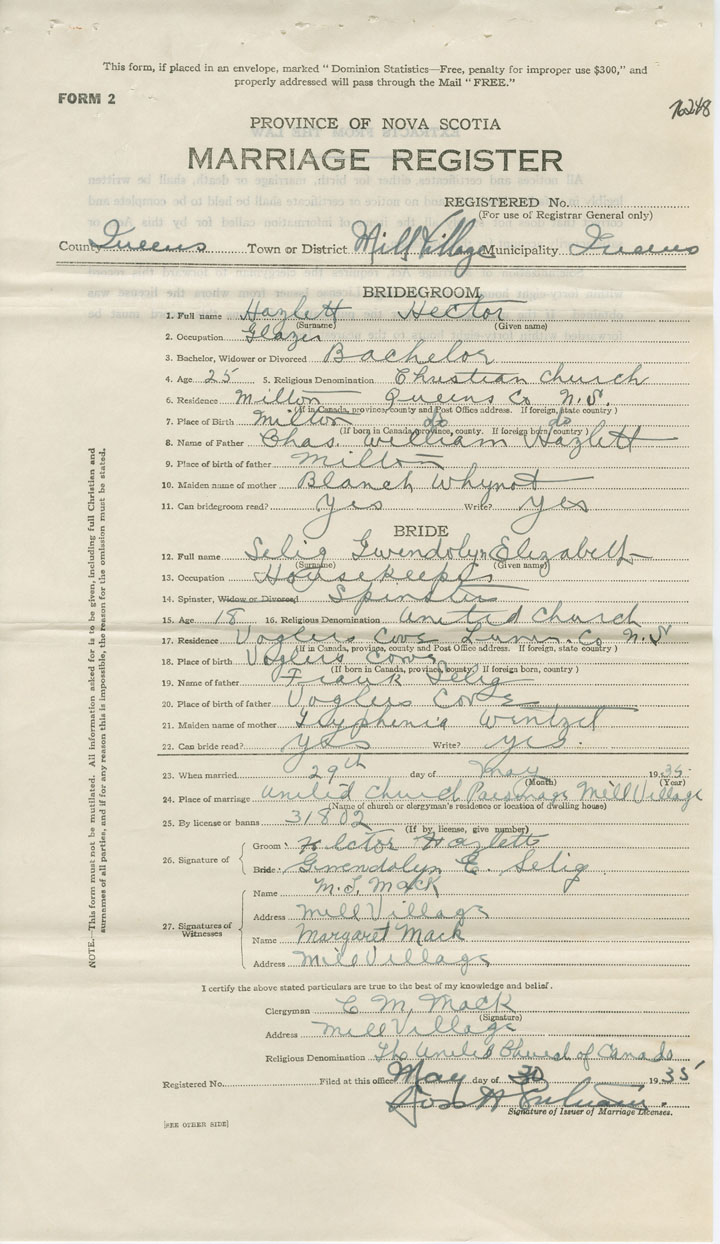 This form, if placed in an envelope, marked "Dominion Statistics—Free, penalty for improper use $300," and
properly addressed will pass through the Mail "FREE."
FORM 2
PROVINCE OF NOVA SCOTIA
MARRIAGE REGISTER
REGISTERED No.
(For use of Registrar General only)
County Queens Town or District Mill Village Municipality Queens
BRIDEGROOM
1. Full name Hazlett Hector
(Surname) (Given name)
2. Occupation Glazer
3. Bachelor, Widower or Divorced Bachelor
4. Age 25 5. Religious Denomination Christian Church
6. Residence Milton Queens Co N.S.
(If in Canada, province, county and Post Office address. If foreign, state country)
7. Place of Birth Milton do do
(If born in Canada, province, county. If foreign born, country)
8. Name of Father Chas. William Hazlett
9. Place of birth of father Milton
10. Maiden name of mother Blanch Whynot
11. Can bridegroom read? Yes Write? Yes
BRIDE
12. Full name Selig Gwendolyn Elizabeth
(Surname) (Given name)
13. Occupation Housekeeper
14. Spinster, Widow or Divorced Spinster
15. Age 18 16. Religious Denomination United Church
17. Residence Voglers Cove Lunn. Co N.S
(If in Canada, province, county and Post Office address. If foreign, state country)
18. Place of birth Voglers Cove
(If born in Canada, province, county. If foreign born, country)
19. Name of father Frank Selig
20. Place of birth of father Voglers Cove
21. Maiden name of mother Wentzel
22. Can bride read? yes Write? yes.
23. When married 29th day of May 1935
(Month) (Year)
24. Place of marriage United Church Parsonage Mill Village
(Name of church or clergyman's residence or location of dwelling house)
25. By license or banns 31802
(If by license, give number)
26. Signature of
Groom: Hector Hazlett
Bride: Gwendolyn E. Selig
27. Signatures of Witnesses
Name Mack
Address Mill Village
Name Margaret Mack
Address Mill Village
I certify the above stated particulars are true to the best of my knowledge and belief.
Clergyman C M, Mack
(Signature)
Address Mill Village
Religious Denomination The United Church of Canada
Registered No. Filed at this office May day of 30 1935
Signature of Issuer of Marriage Licenses.
[SEE OTHER SIDE]
NOTE.—This form must not be mutilated. All information asked for is to be given, including full Christian and
surnames of all parties, and if for any reason this is impossible, the reason for the omission must be stated.